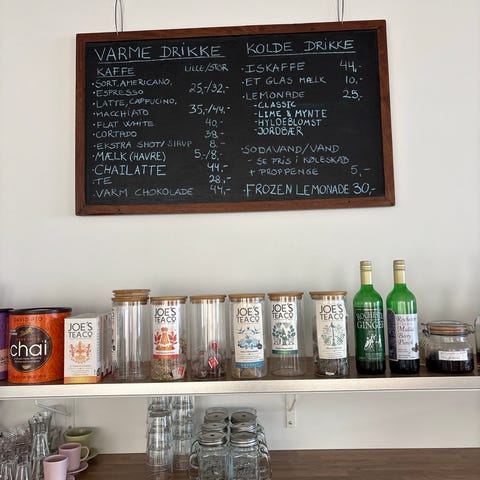 VARME DRIKKE
KAFFE LILLE/STOR
·SORT, AMERICANO,
ESPRESSO 25,-/32,-
·LATTE, CAPPUCINO,
MACCHIATO 35,-/44,-
·FLAT WHITE 40,-
·CORTADO 38,-
·EKSTRA SHOT/SIRUP 8,-
·MÆLK (HAVRE) 5,-/8,-
·CHAILATTE 44,-
·TE 28,-
·VARM CHOKOLADE 44,-
KOLDE DRIKKE
·ISKAFFE 44,-
·ET GLAS MÆLK 10,-
·LEMONADE 25,-
-CLASSIC
-LIME & MYNTE
-HYLDEBLOMST
-JORDBÆR
·SODAVAND/VAND
- SE PRIS I KØLESKAB
+ PROPPENGE 5,-
·FROZEN LEMONADE 30,-
DAVID RIO
chai
JOE'S
TEA CO
JOE'S
TEA CO
JOE'S
TEA CO
JOE'S
TEA CO
JOE'S
TEA CO
GINGER
Rochester
Berry